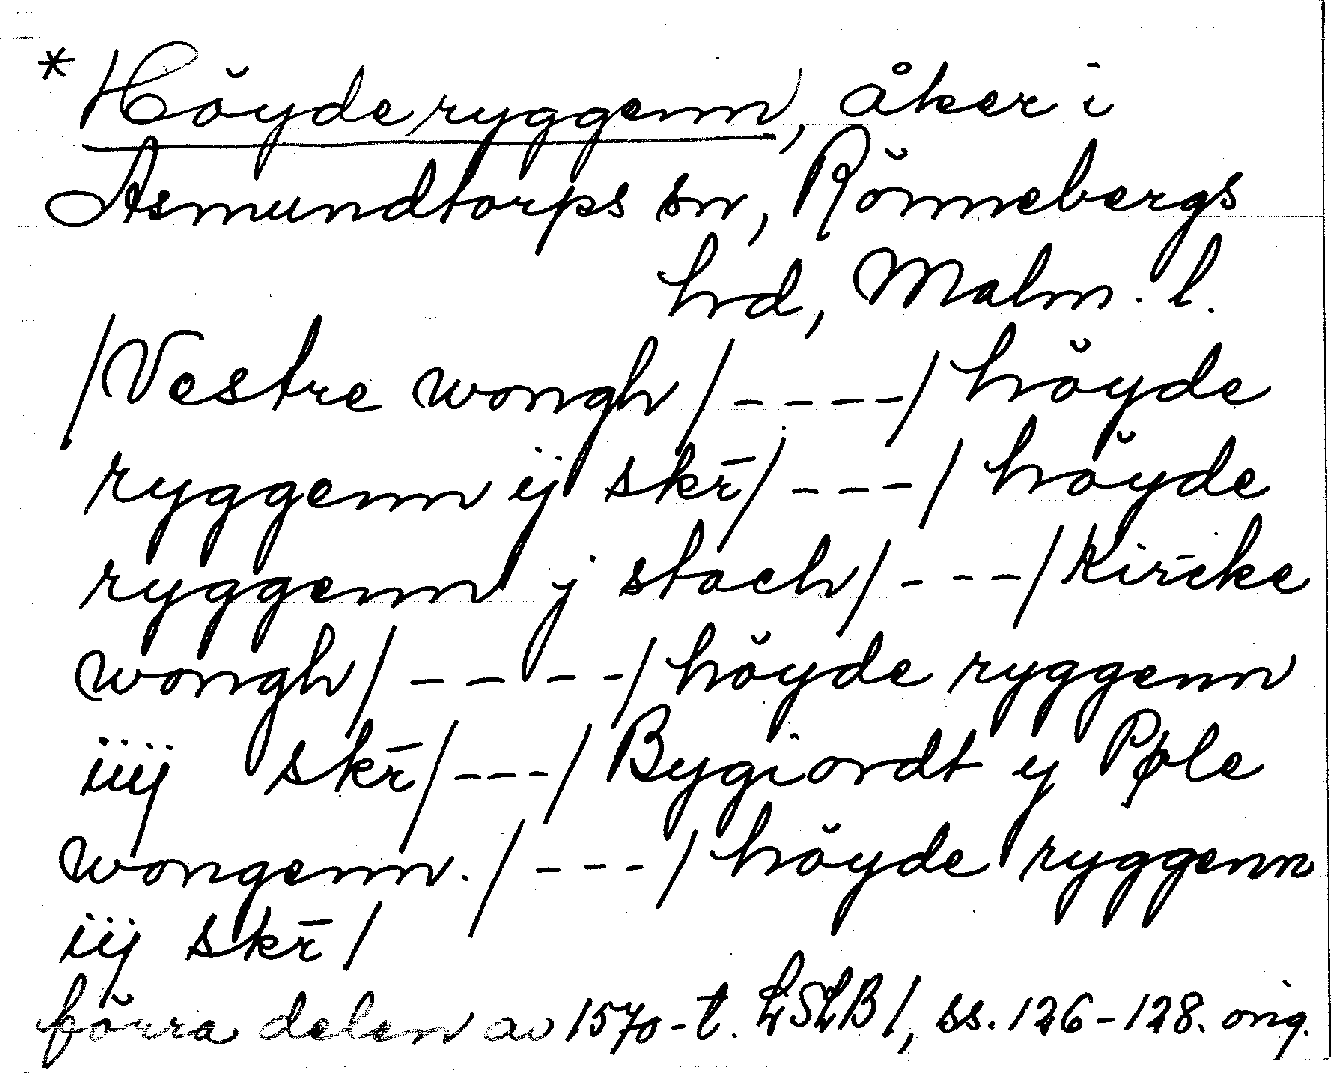 * Höyde ryggenn, åker i
Asmundtorps sn, Rönnebergs
hrd, Malm. l.
/Vestre wongh/----/höyde
ryggenn ij skr̄/---/höyde
ryggenn j stoch/---/Kircke
wongh/----/höyde ryggenn
iiij skr̄/---/Bygiordt y Pøle
wongenn./---/höyde ryggenn
iij skr̄/
förra delen av 1570-t. LSLB 1, ss. 126-128. orig.